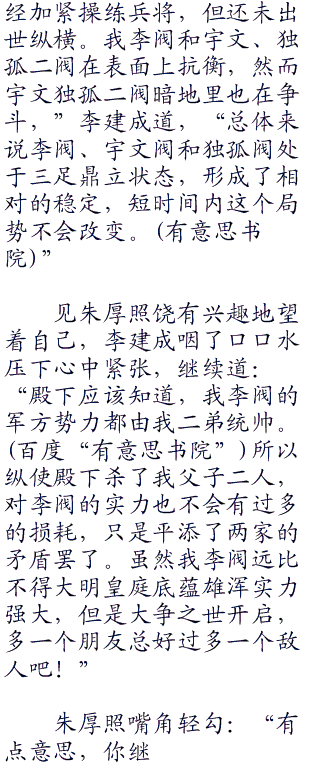 经加紧操练兵将，但还未出
世纵横。我李阀和宇文、独
孤二阀在表面上抗衡，然而
宇文独孤二阀暗地里也在争
斗，”李建成道，“总体来
说李阀、宇文阀和独孤阀处
于三足鼎立状态，形成了相
对的稳定，短时间内这个局
势不会改变。(有意思书
院)”
见朱厚照饶有兴趣地望
着自己，李建成咽了口口水
压下心中紧张，继续道：
“殿下应该知道，我李阀的
军方势力都由我二弟统帅。
(百度“有意思书院”)所以
纵使殿下杀了我父子二人，
对李阀的实力也不会有过多
的损耗，只是平添了两家的
矛盾罢了。虽然我李阀远比
不得大明皇庭底蕴雄浑实力
强大，但是大争之世开启，
多一个朋友总好过多一个敌
人吧！”
朱厚照嘴角轻勾：“有
点意思，你继